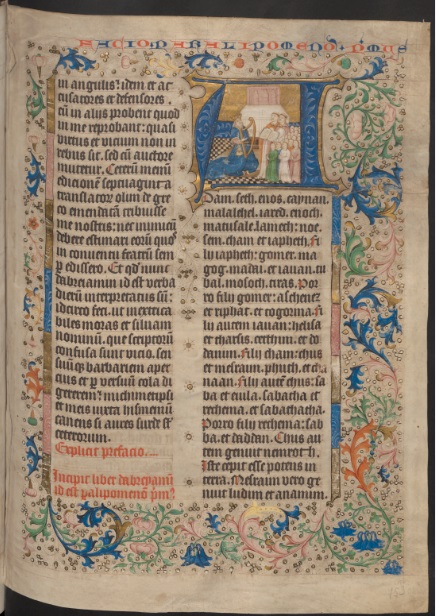 in angulis: idem et ac
cusatores et defensores
cū in aliis probent quod
in me reprobant: quasi
virtus et vicium non in
rebus sit. sed cū auctore
mutetur. Ceterū memī
edicionē septuagint a
translator olim de gre
co emendatā tribuisse
me nostris: nec inimicū
debere estimari eorū quos
in conventu fratrū sem
per edissero. Et qd nunc
dabreiamin id est verba
dierū interpretatus sū:
idcirco feci. ut inextica
biles moras et silvam
nominū, que scriptorū
confusa sunt vicio. sen
suūqz barbariem aper
cius et p versuū cola di
gererem: michimet ipsi
et meis iuxta hismeniū
canens si aures surde sūt
ceterorum.
Explicit prefacio
Incipit liber dabreyamī
id est palipomenō pm9
Adam. seth. enos. caynan.
malalehel. iared. enoch.
matusale. lamech: noe.
sem. cham et iapheth. fi
lii iapheth: gomer. ma
gog. madai. et iauan. tu
bal. mosoch. tiras. Por
ro filii gomer: aschenez
et riphat. et togorma. fi
lii autem iauan: helisa
et tharsis. cetthim. et do
danim. filii cham: chus
et mesraim. phuth. et ch
anaan. filii autē chus: sa
ba et euila. sabatha et
rechema. et sabathacha.
Porro filii rechema: sab
ba. et daddan. Chus au
tem genuit nemroth.
Iste cepit esse potens in
terra. Mesraim vero ge
nuit ludim et anamim.